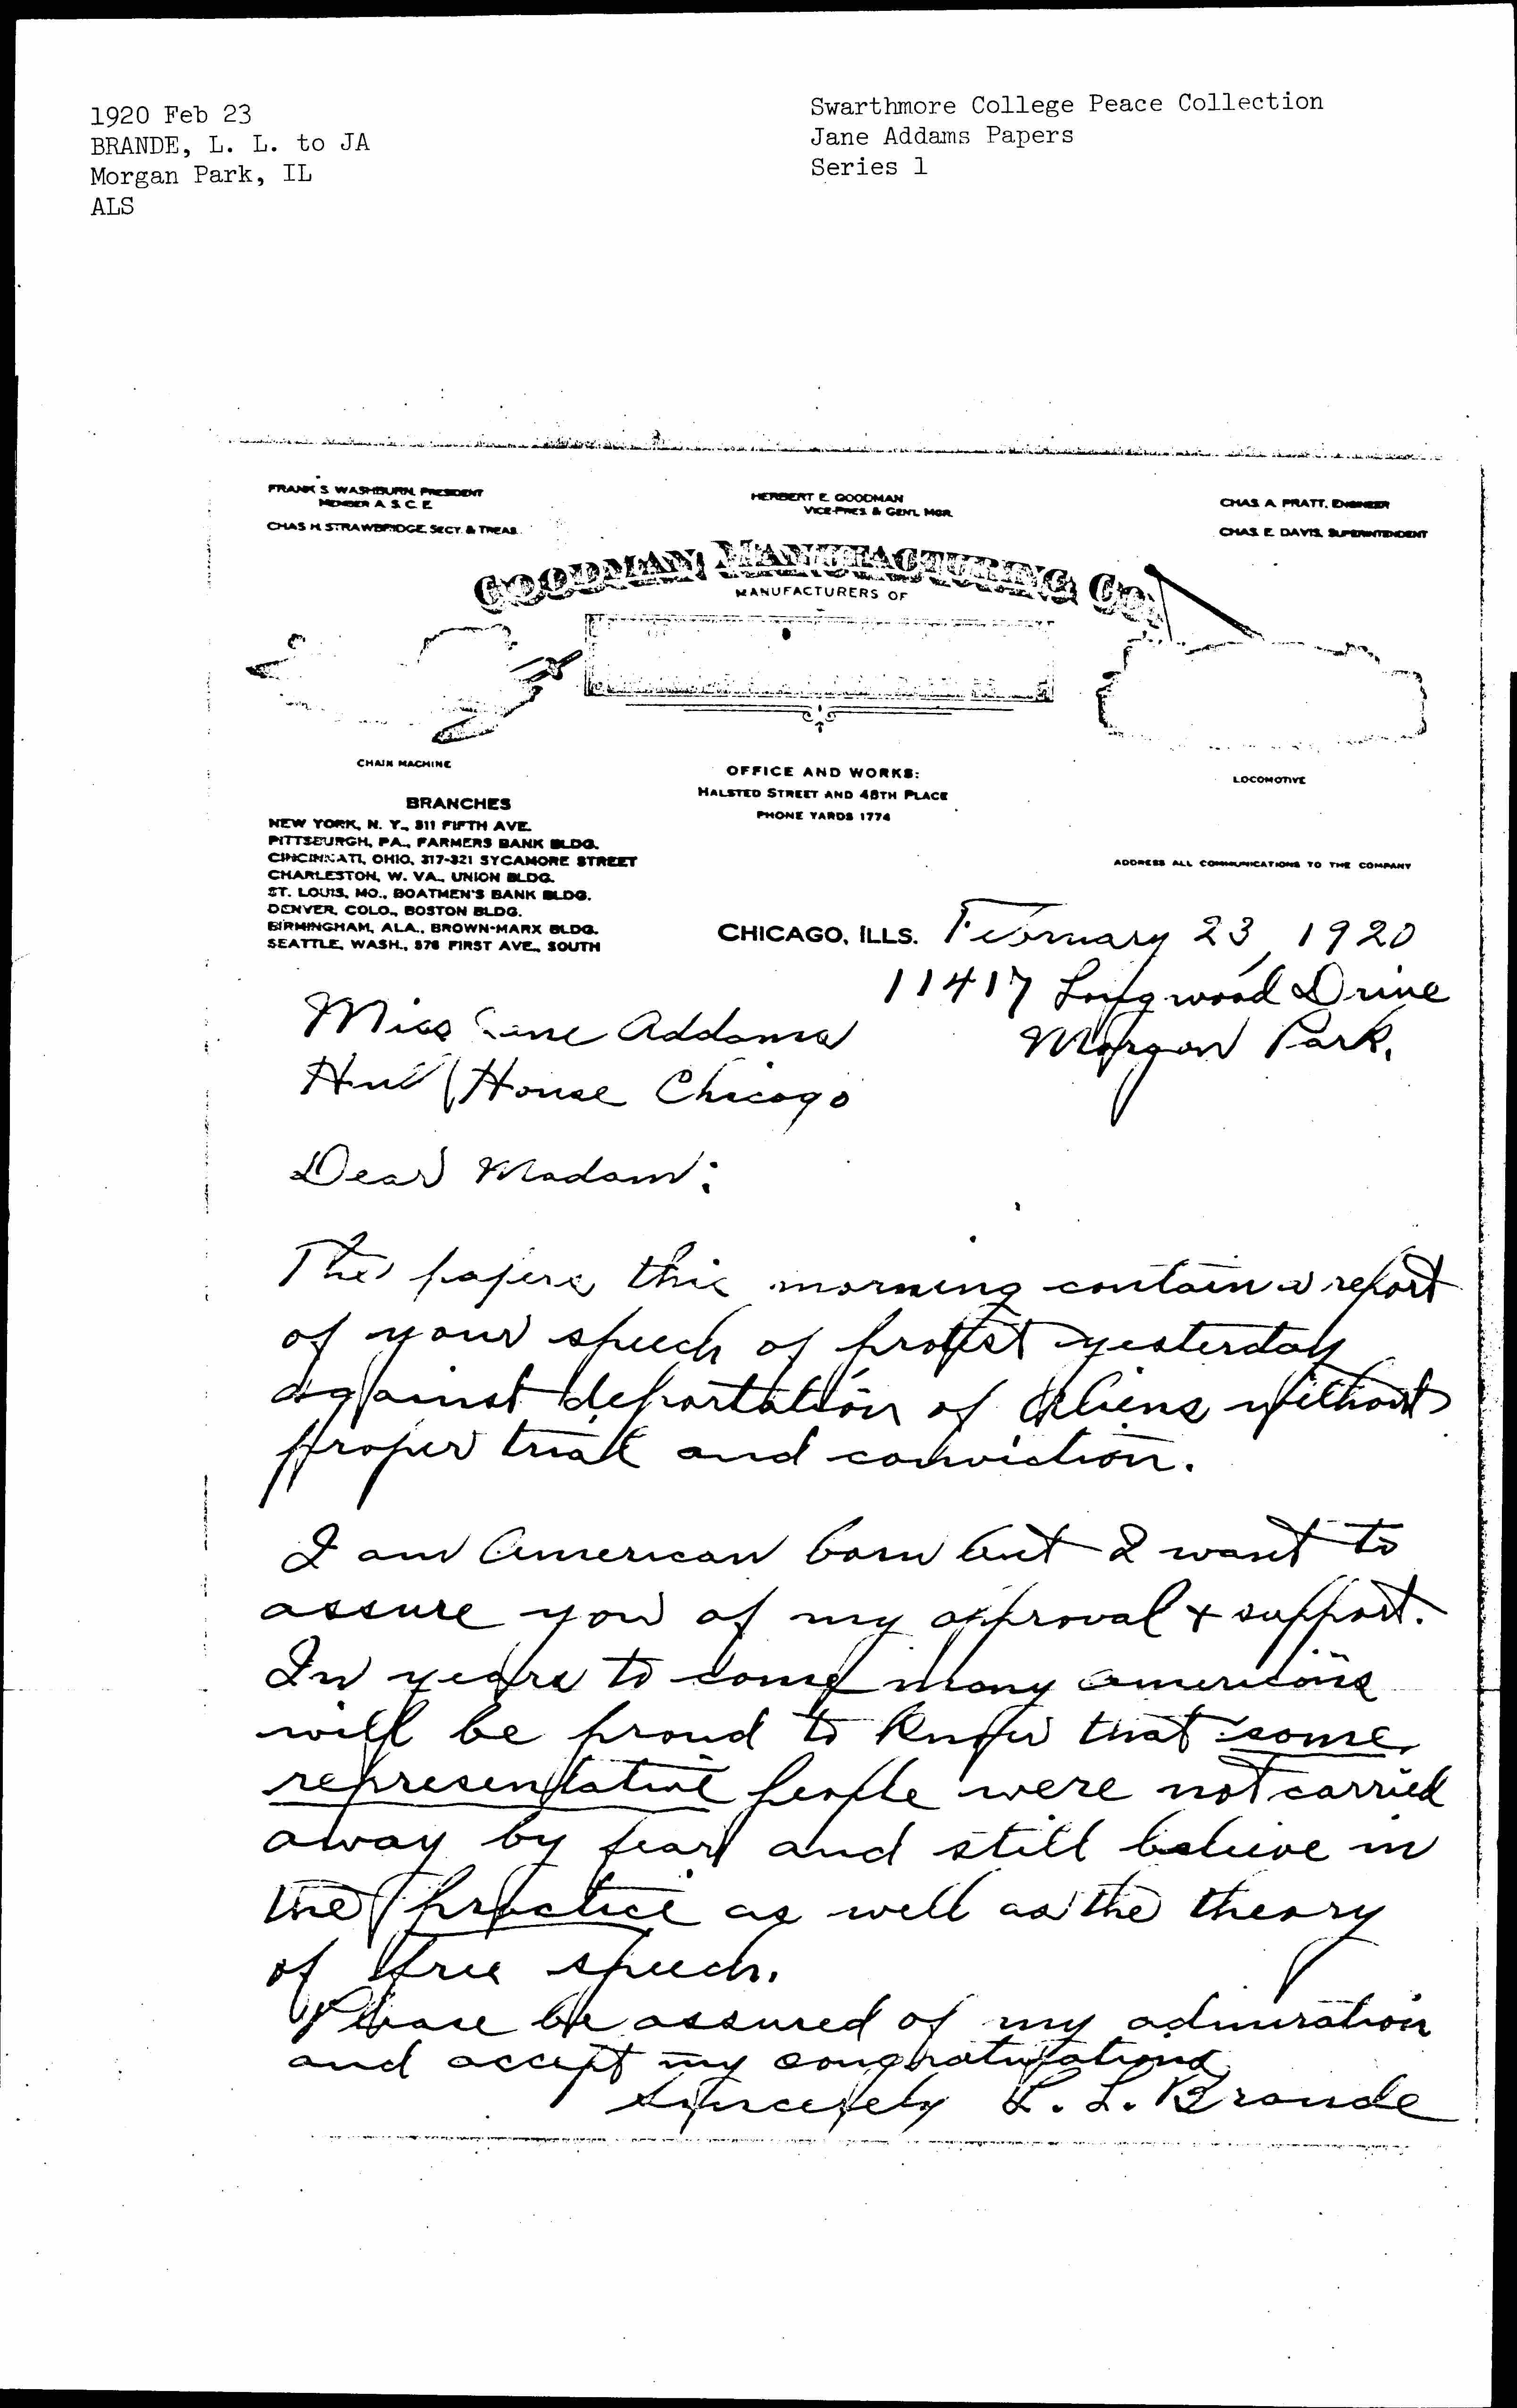 1920 Feb 23
BRANDE, L. L. to JA
Morgan Park, IL
ALS
Swarthmore College Peace Collection
Jane Addams Papers
Series 1
FRANK S. WASHBURN, PRESIDENT
MEMBER A. S. C. E.
CHAS. H. STRAWBRIDGE, SECY. & TREAS.
HERBERT E. GOODMAN
VICE-PRES. & GENL. MGR.
CHAS. A. PRATT, ENGINEER
CHAS. E. DAVIS, SUPERINTENDENT
GOODMAN MANUFACTURING CO.
MANUFACTURERS OF
CHAIN MACHINE
OFFICE AND WORKS:
HALSTED STREET AND 48TH PLACE
PHONE YARDS 1774
LOCOMOTIVE
BRANCHES
NEW YORK, N. Y., 311 FIFTH AVE.
PITTSBURGH, PA., FARMERS BANK BLDG.
CINCINNATI, OHIO, 317-321 SYCAMORE STREET
CHARLESTON, W. VA., UNION BLDG.
ST. LOUIS, MO., BOATMEN'S BANK BLDG.
DENVER, COLO., BOSTON BLDG.
BIRMINGHAM, ALA., BROWN-MARX BLDG.
SEATTLE, WASH., 576 FIRST AVE., SOUTH
ADDRESS ALL COMMUNICATIONS TO THE COMPANY
CHICAGO, ILLS. February 23, 1920
11417 Longwood Drive
Morgan Park.
Miss Jane Addams
Hull House Chicago
Dear Madam:
The papers this morning contain a report
of your speech of protest yesterday
against deportation of aliens without
proper trial and conviction.
I am American born but I want to
assure you of my approval & support.
In years to come many americans
will be proud to know that some
representative people were not carried
away by fear and still believe in
the practice as well as the theory
of free speech.
Please be assured of my admiration
and accept my congratulations
Sincerely L. L. Brande